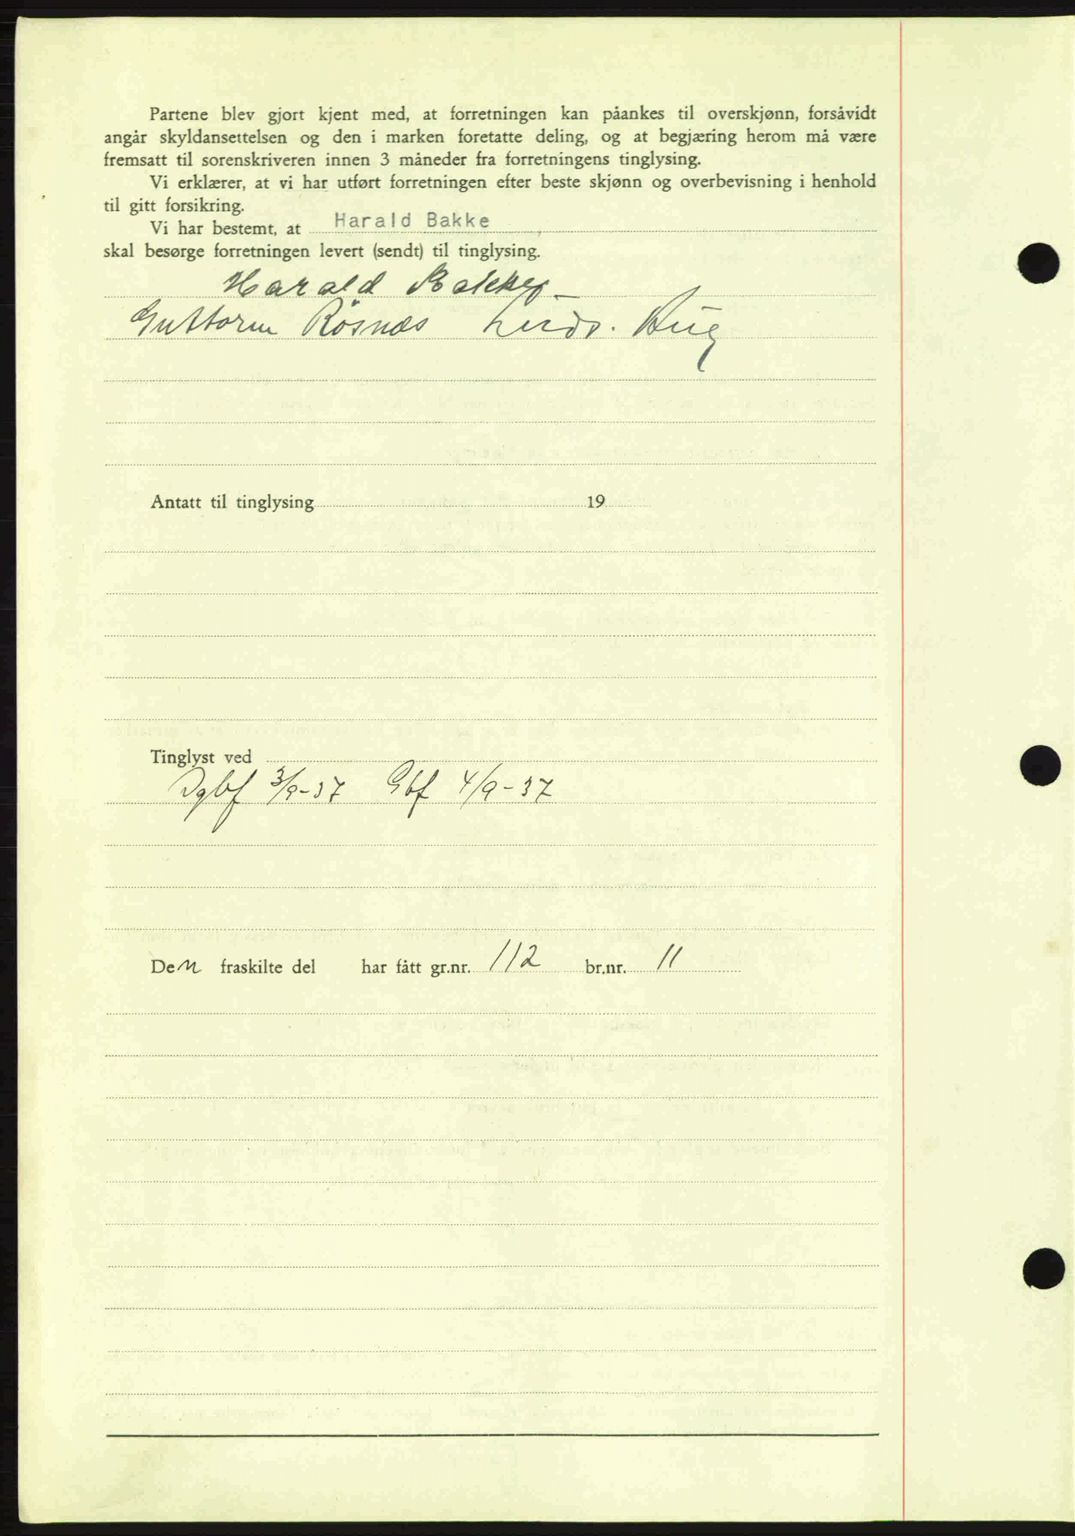 Partene blev gjort kjent med, at forretningen kan påankes til overskjønn, forsåvidt
angår skyldansettelsen og den i marken foretatte deling, og at begjæring herom må være
fremsatt til sorenskriveren innen 3 måneder fra forretningens tinglysing.
Vi erklærer, at vi har utført forretningen efter beste skjønn og overbevisning i henhold
til gitt forsikring.
Vi har bestemt, at Harald Bakke
skal besørge forretningen levert (sendt) til tinglysing.
Harald Bakke
Guttorm Røsnæs Ludv. Aug
Antatt til tinglysing 19
Tinglyst ved
Dgbf 3/9-37 Gbf 4/9-37
Den fraskilte del har fått gr.nr. 112 br.nr. 11